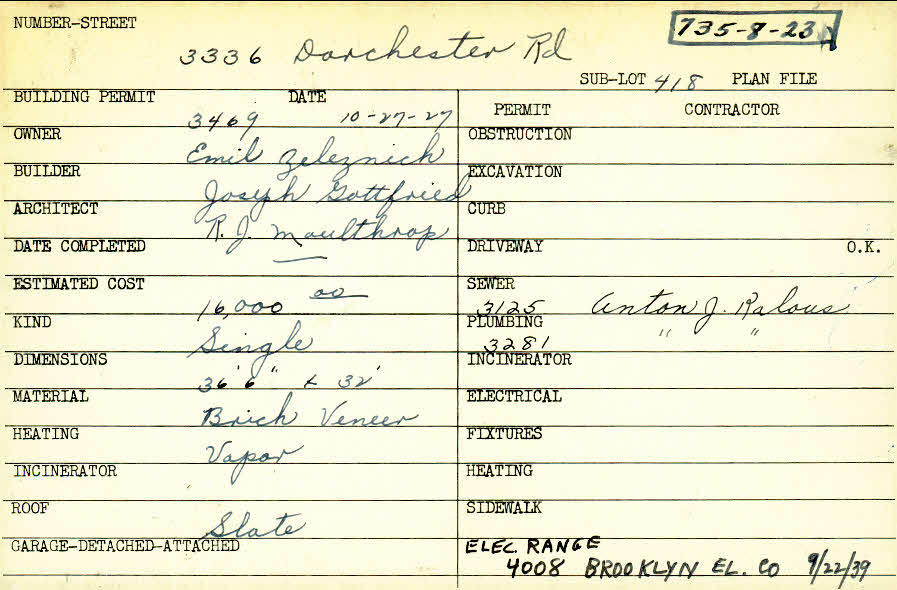 NUMBER-STREET
735-8-23
3336 Dorchester Rd
SUB-LOT 418 PLAN FILE
BUILDING PERMIT DATE
3469 10-27-27
PERMIT CONTRACTOR
OWNER
Emil Zeleznich
OBSTRUCTION
BUILDER
Joseph Gottfried
EXCAVATION
ARCHITECT
R. J. Moulthrop
CURB
DATE COMPLETED
—
DRIVEWAY O.K.
ESTIMATED COST
16,000 00
SEWER
3125 Anton J. Kalous
KIND
Single
PLUMBING
3281 " "
DIMENSIONS
36' 6" x 32'
INCINERATOR
MATERIAL
Brick Veneer
ELECTRICAL
HEATING
Vapor
FIXTURES
INCINERATOR
HEATING
ROOF
Slate
SIDEWALK
GARAGE-DETACHED-ATTACHED
ELEC. RANGE
4008 BROOKLYN EL. CO 9/22/39